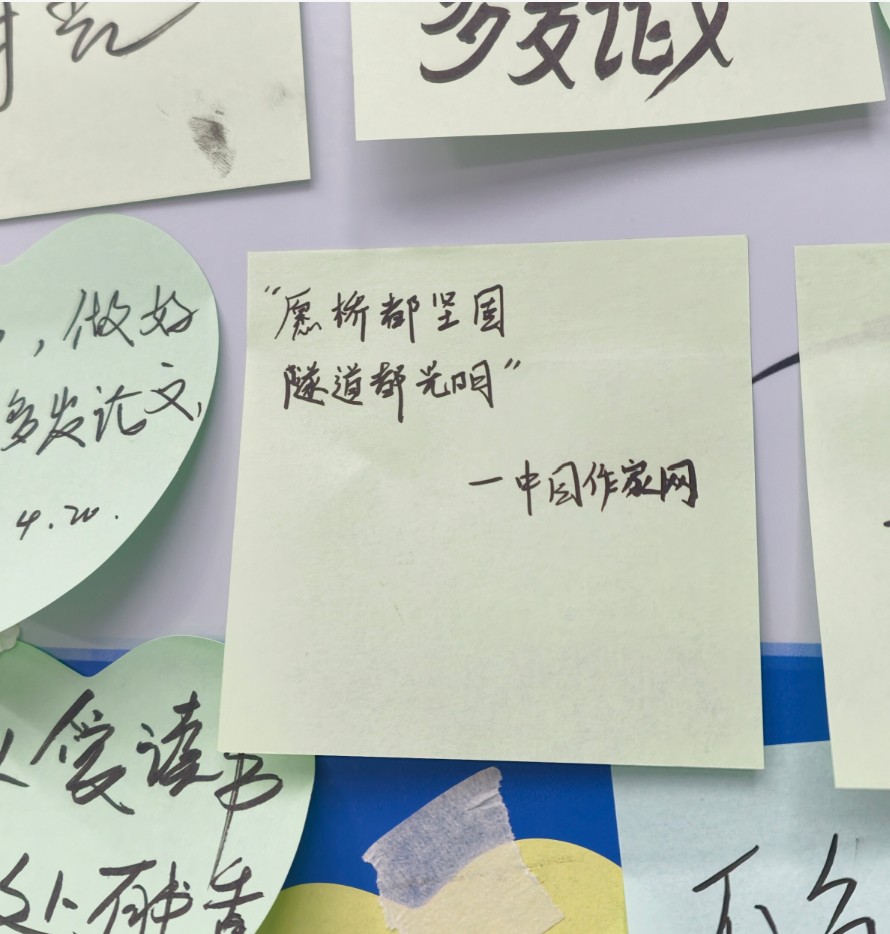 多发论文
，做好
多发论文，
4.20.
"愿桥都坚固
隧道都光明"
一中国作家网
人爱读书
处有书香